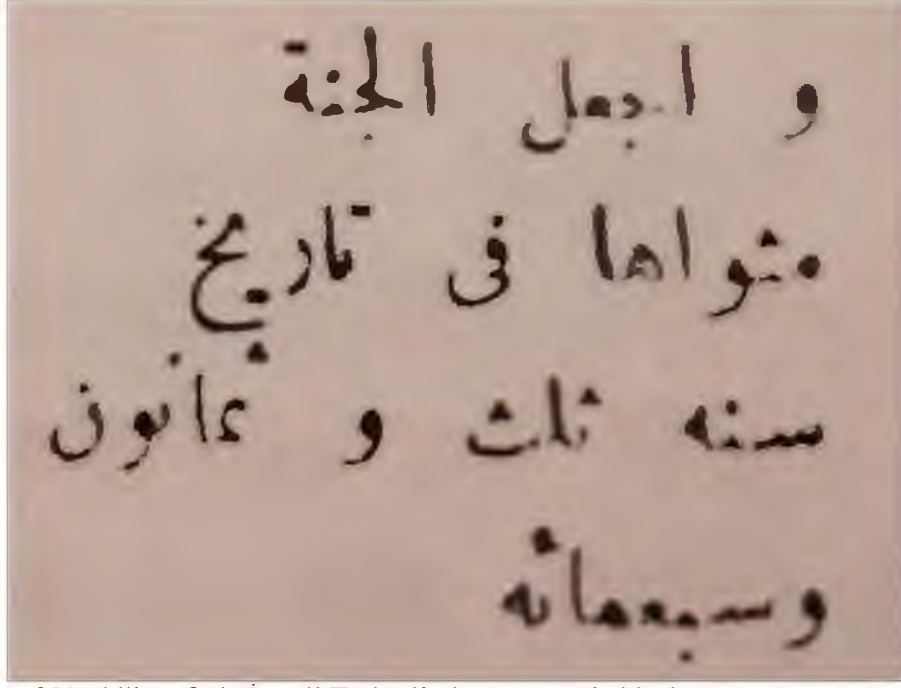 و اجعل الجنة
مثواها فى تاريخ
سنه ثلث و ثمانون
وسبعمائه